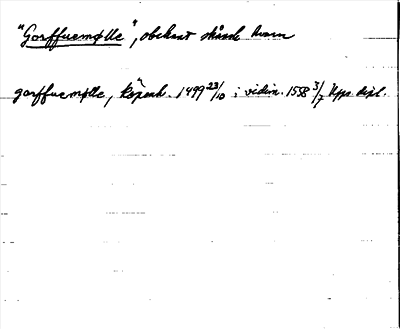 "Gorffuemølle", obekant skånsk kvarn
gorffuemølle, Köpenh. 1499 23/10 i vidim. 1558 3/7 Upps dipl.